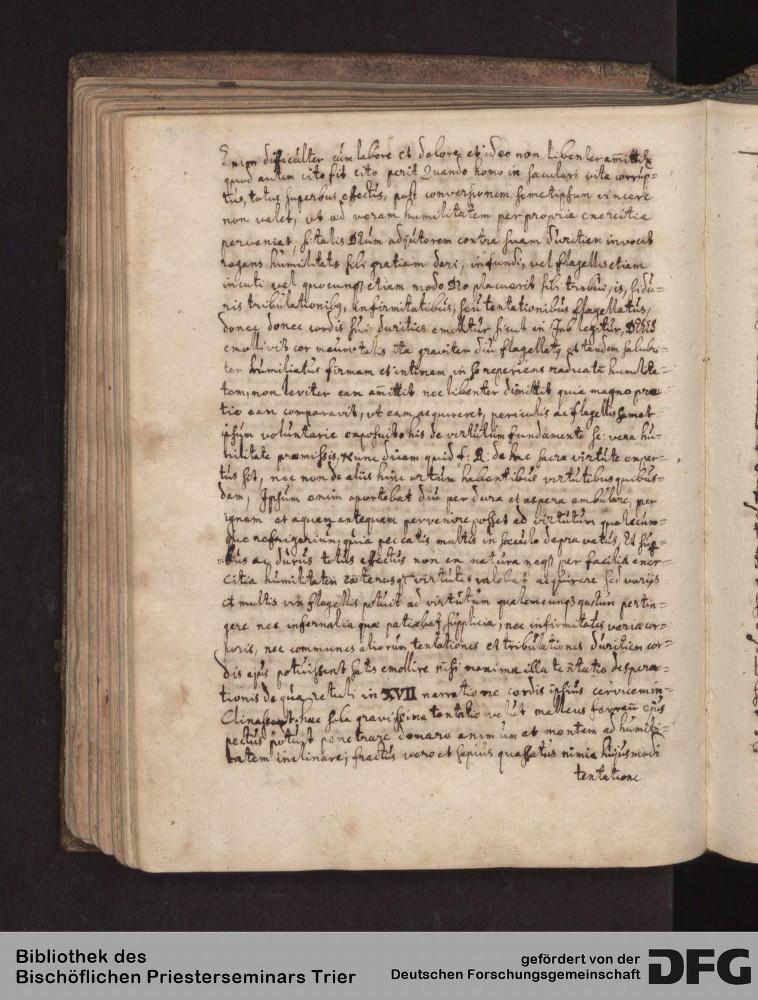 Enim difficulter cum labore et dolore et ideo non libenter amittit
quod autem cito fit cito perit Quando homo in sæculari vita corrup=
tus, totus superbus effectus, post conversionem semetipsum vincere
non valet, ut ad veram humilitatem per propria exercitia
perveniat, si talis Deum adjutorem contra suam duritiem invocat
rogans humilitatis sibi gratiam dari, infundi, vel flagellis etiam
incuti vel quocunq etiam modo Deo placuerit sibi tribui, is, si du=
ris tribulationibq, infirmitatibus, seu tentationibus flagellatus,
donec donec cordis sui durities emolliatur, sicut in Job legitur, DEUS
emollivit cor meum talis ita graviter diu flagellatq et tandem salubri=
ter humiliatus firmam et intimam in se reperiens radicatā humilita=
tem, non leviter eam amittit nec libenter dimittit quia magno præ=
tio eam comparavit, ut eam acquireret, periculis ac flagellis semet=
ipsum voluntarie exposuit his de virtutum fundamento sc: vera hu=
militate præmissis, nunc dicam quid f: R: de hac sacra virtute exper=
tus sit, nec non de aliis hinc ortum habentibus virtutibus quibus=
dam, Ipsum enim oportebat diu per dura et aspera ambulare, per
ignem et aquam antequam pervenire posset ad virtutum qualecun=
que refrigerium, quia peccatis multis in sæculo depravatus, et sup=
bus ac durus totus effectus non ex natura neqs per facilia exer=
citia humilitatem cæterasqs virtutes valebat acquirere sed varijs
et multis flagellis potuit ad virtutum qualemcunqs gustum pertin=
gere nec infernalia quæ patiebatq supplicia, nec infirmitates variæ cor=
poris, nec communes aliorum tentationes et tribulationes duritiem cor=
dis ejus potuissent satis emollire nisi maxima illa tentatio despera=
tionis de qua retuli in XVII narratione cordis ipsius cervicem in=
Clinasset; hæc sola gravissima tentatio velut malleus ferreus ejus
pectus potuit penetrare domare animum et mentem ad humili=
tatem inclinare; fractus vero et sæpius quassatus nimia hujusmodi
tentatione
Bibliothek des
Bischöflichen Priesterseminars Trier
gefördert von der
Deutschen Forschungsgemeinschaft
DFG